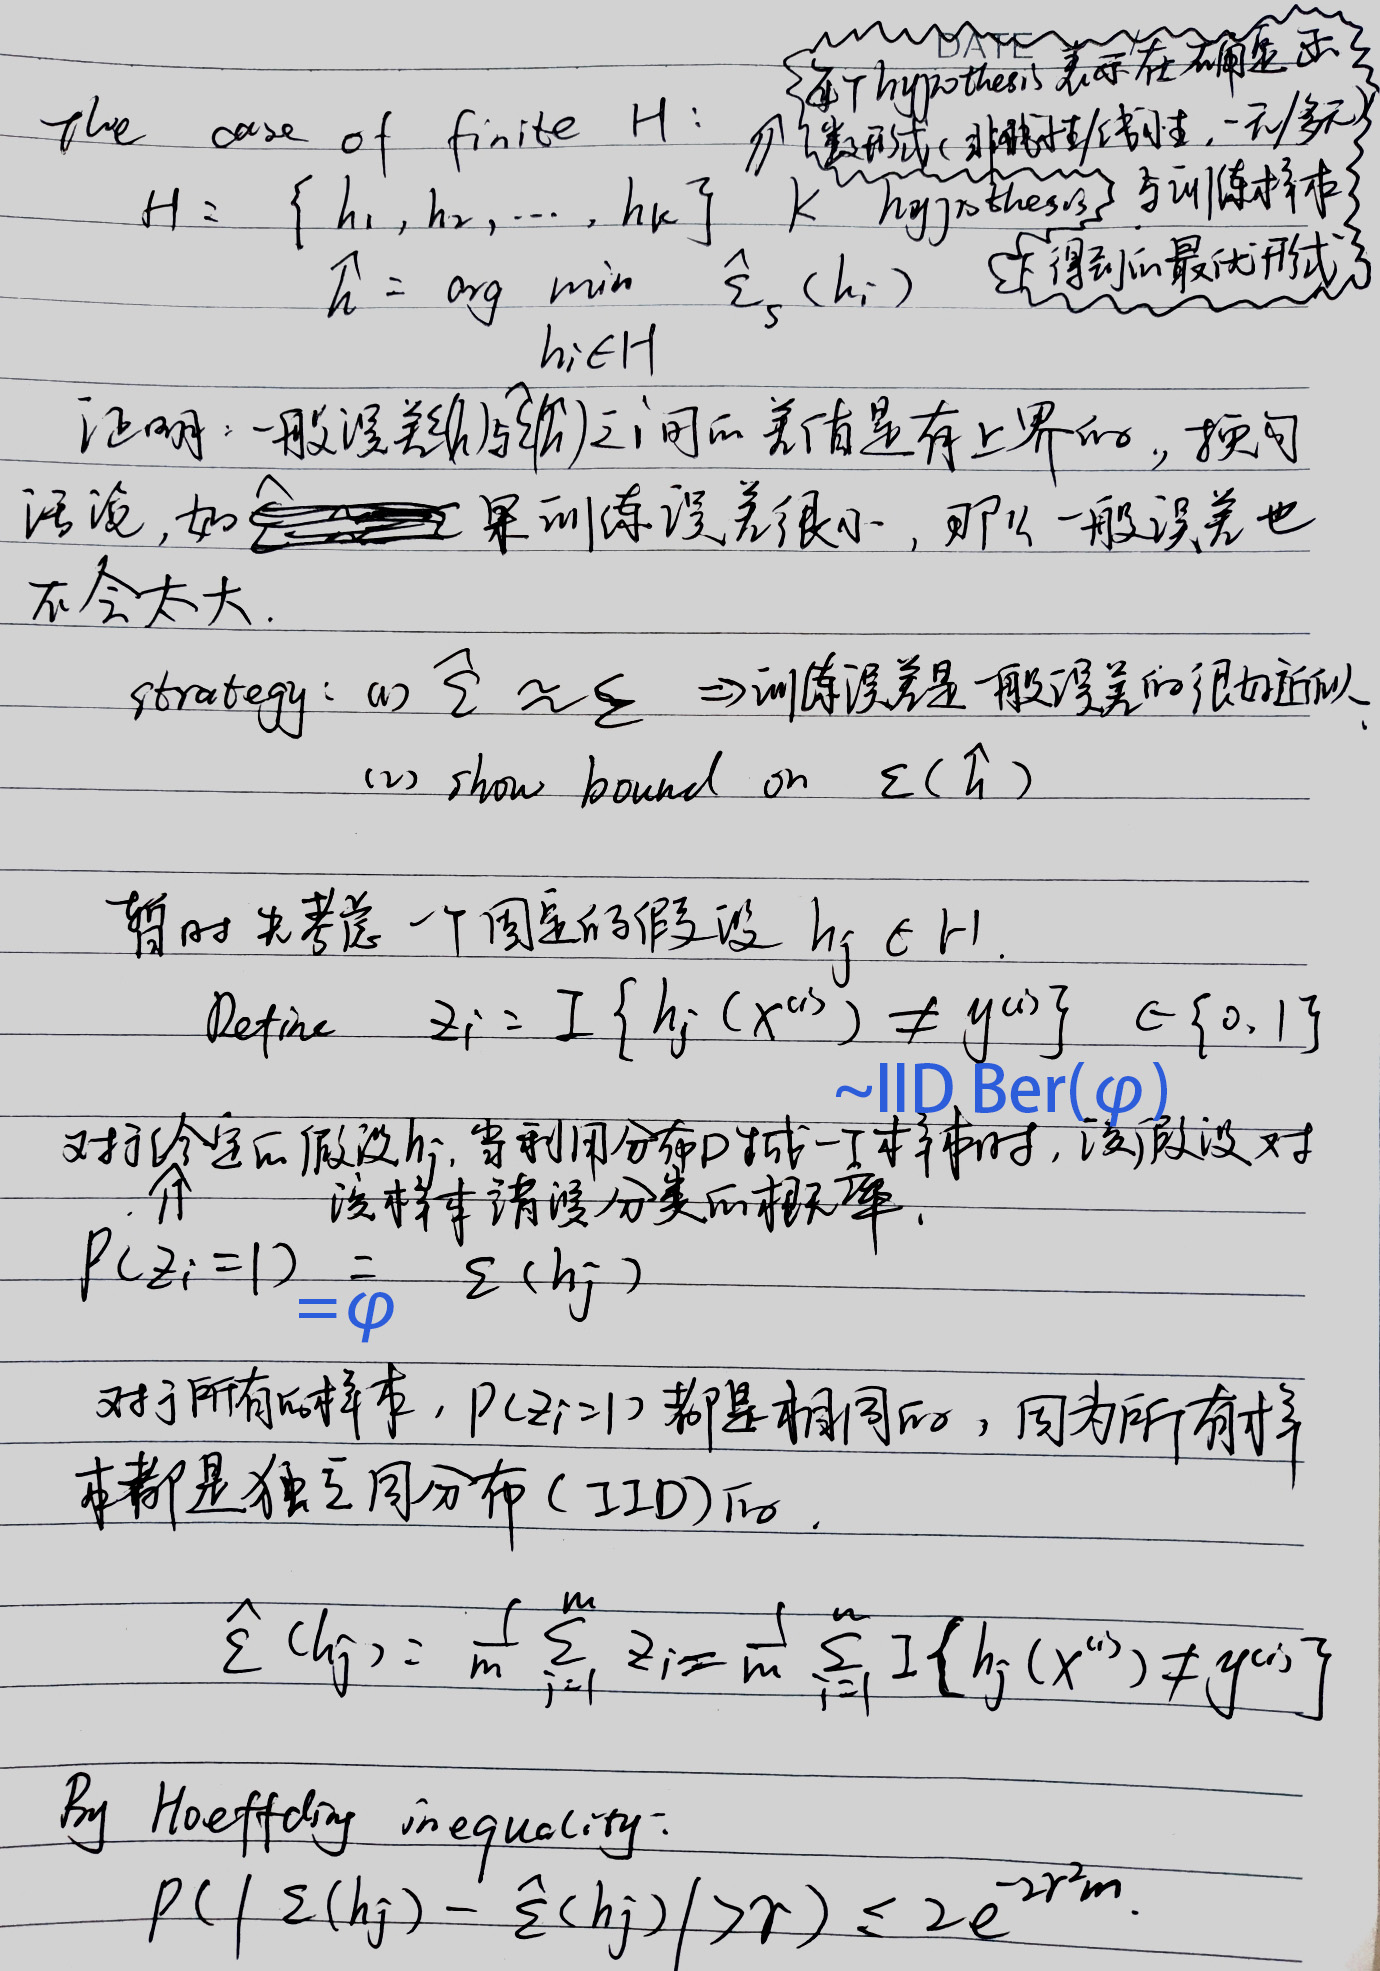 DATE
每个hypothesis表示在确定函
the case of finite H: 数形式(非线性/线性,一元/多元)
H = {h₁, h₂, ..., hₖ} K hypothesis 与训练样本
ĥ = arg min ε̂ₛ(hᵢ) 下得到的最优形式
hᵢ∈H
证明:一般误差ε(ĥ)与ε̂(ĥ)之间的差值是有上界的,换句
话说,如果训练误差很小,那么一般误差也
不会太大.
strategy: (1) ε̂ ≈ ε ⇒训练误差是一般误差的很好近似.
(2) show bound on ε(ĥ)
暂时先考虑一个固定的假设 hⱼ ∈ H.
Define zᵢ = I{hⱼ(x⁽ⁱ⁾) ≠ y⁽ⁱ⁾} ∈{0,1}
~IID Ber(φ)
对于给定的假设hⱼ,当利用分布D生成一个样本时,该假设对
⇑ 该样本错误分类的概率.
P(zᵢ=1) = ε(hⱼ)
=φ
对于所有的样本,P(zᵢ=1)都是相同的,因为所有样
本都是独立同分布(IID)的.
ε̂(hⱼ) = 1/m ∑ᵢ₌₁ᵐ zᵢ = 1/m ∑ᵢ₌₁ᵐ I{hⱼ(x⁽ⁱ⁾) ≠ y⁽ⁱ⁾}
By Hoeffding inequality:
P(|ε(hⱼ) - ε̂(hⱼ)|>γ) ≤ 2e^{-2γ²m}.